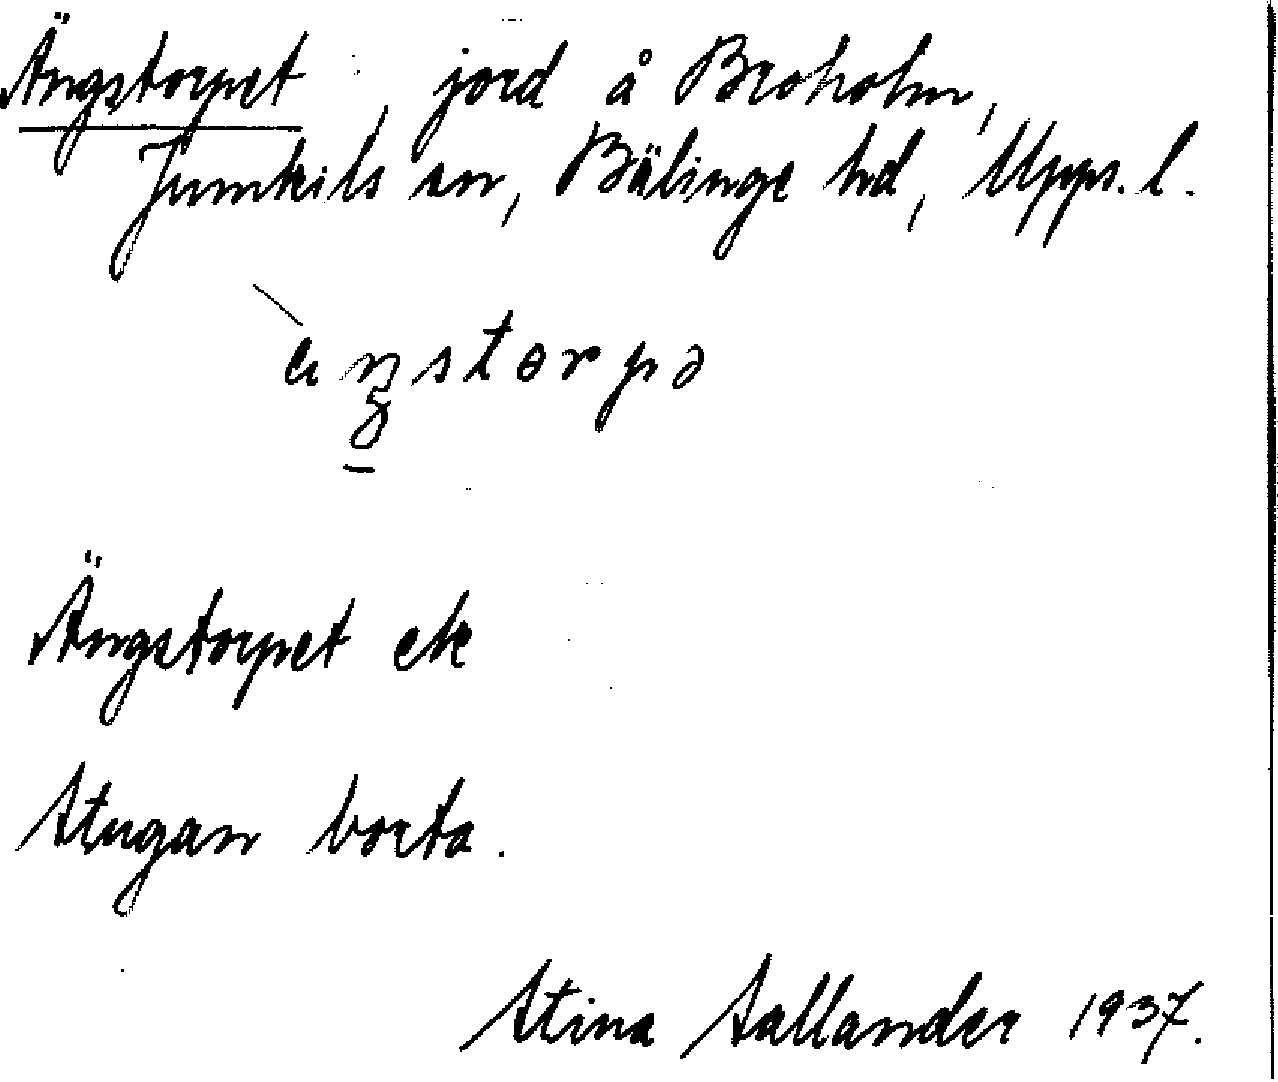 Ängstorpet, jord å Broholm,
Jumkils sn, Bälinge hd, Upps. l.
äŋstorpə
Ängstorpet ek
Stugan borta.
Stina Sallander 1937.